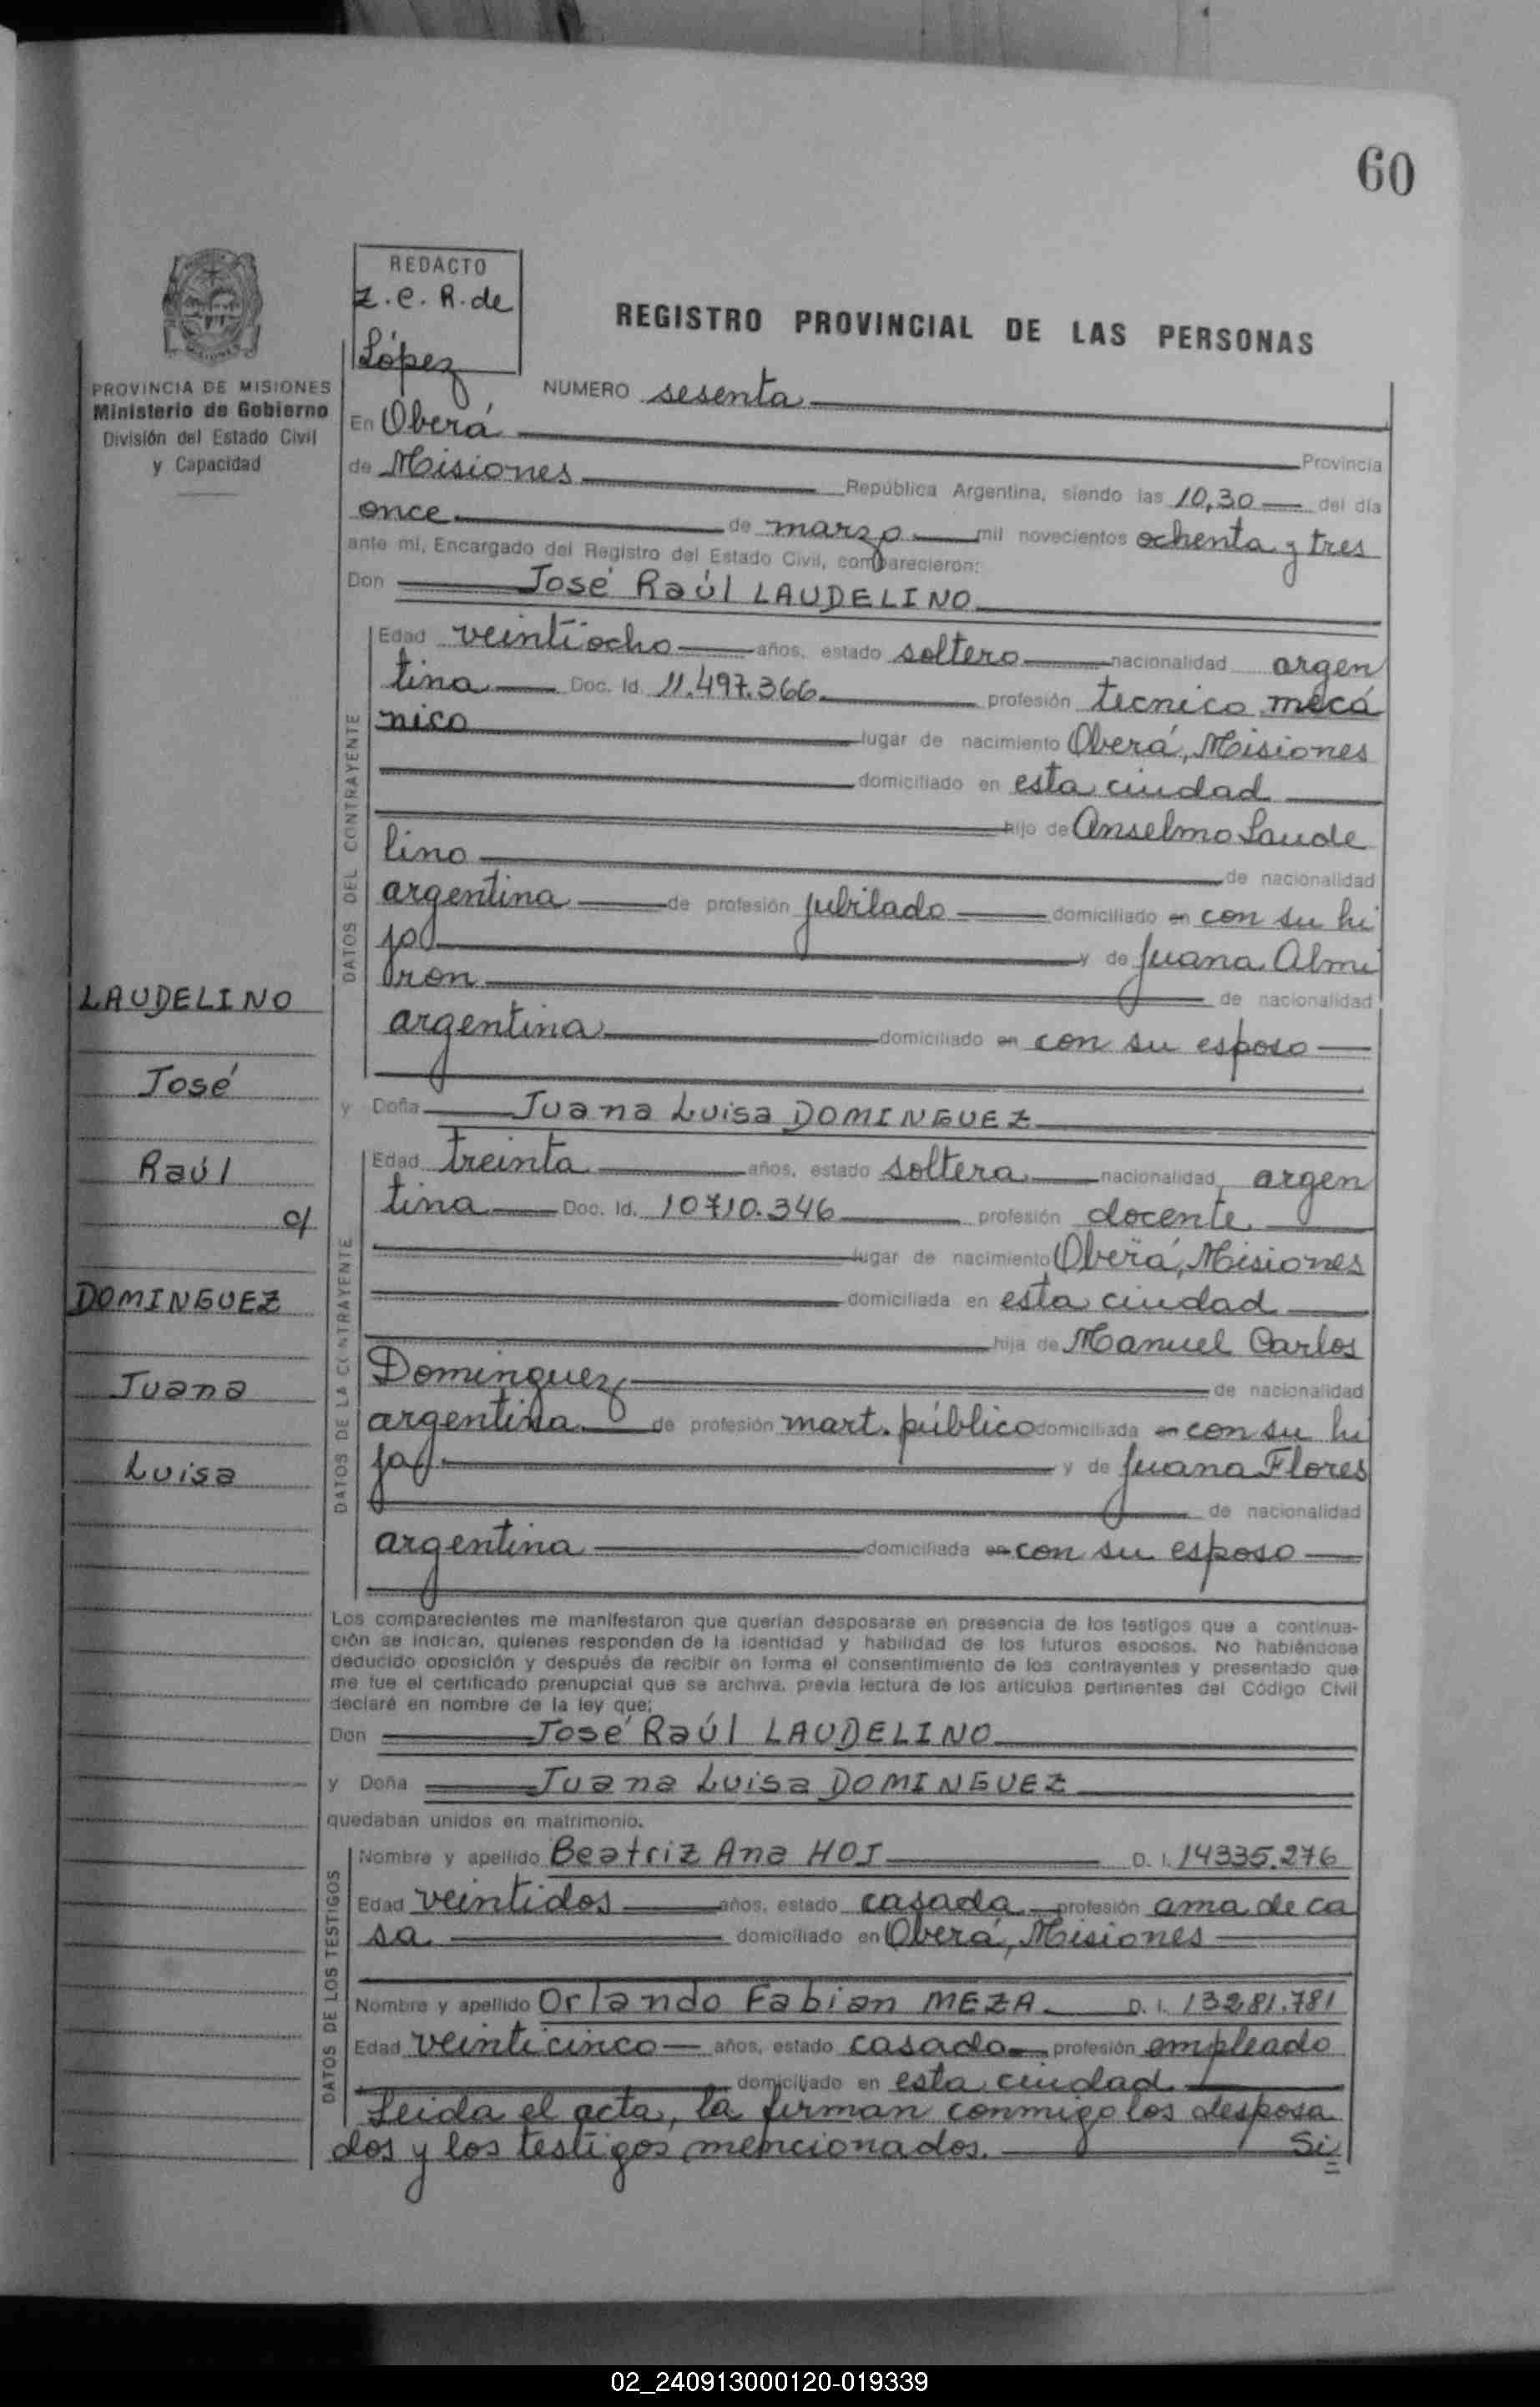 60
REDACTO
Z.C.R. de
López
REGISTRO PROVINCIAL DE LAS PERSONAS
PROVINCIA DE MISIONES
Ministerio de Gobierno
División del Estado Civil
y Capacidad
NUMERO sesenta
En Oberá Provincia
de Misiones República Argentina, siendo las 10,30 del día
once de marzo mil novecientos ochenta y tres
ante mi, Encargado del Registro del Estado Civil, comparecieron:
Don José Raúl LAUDELINO
DATOS DEL CONTRAYENTE
Edad veintiocho años, estado soltero nacionalidad argen
tina Doc. Id. 11.497.366 profesión tecnico mecá
nico lugar de nacimiento Oberá, Misiones
domiciliado en esta ciudad
hijo de Anselmo Laude
lino de nacionalidad
argentina de profesión jubilado domiciliado en con su hi
jo y de Juana Almi
ron de nacionalidad
argentina domiciliado en con su esposo
y Doña Juana Luisa DOMINGUEZ
DATOS DE LA CONTRAYENTE
Edad treinta años, estado soltera nacionalidad argen
tina Doc. Id. 10710.346 profesión docente
lugar de nacimiento Oberá, Misiones
domiciliada en esta ciudad
hija de Manuel Carlos
Dominguez de nacionalidad
argentina de profesión mart. público domiciliada en con su hi
ja y de Juana Flores
de nacionalidad
argentina domiciliada en con su esposo
LAUDELINO
José
Raúl
c/
DOMINGUEZ
Juana
Luisa
Los comparecientes me manifestaron que querían desposarse en presencia de los testigos que a continua-
ción se indican, quienes responden de la identidad y habilidad de los futuros esposos. No habiéndose
deducido oposición y después de recibir en forma el consentimiento de los contrayentes y presentado que
me fue el certificado prenupcial que se archiva, previa lectura de los artículos pertinentes del Código Civil
declaré en nombre de la ley que:
Don José Raúl LAUDELINO
y Doña Juana Luisa DOMINGUEZ
quedaban unidos en matrimonio.
DATOS DE LOS TESTIGOS
Nombre y apellido Beatriz Ana HOJ D. I. 14335.276
Edad veintidos años, estado casada profesión ama de ca
sa domiciliado en Oberá, Misiones
Nombre y apellido Orlando Fabian MEZA D. I. 13281.781
Edad veinticinco años, estado casado profesión empleado
domiciliado en esta ciudad.
Leida el acta, la firman conmigo los desposa
dos y los testigos mencionados. Si
02_240913000120-019339